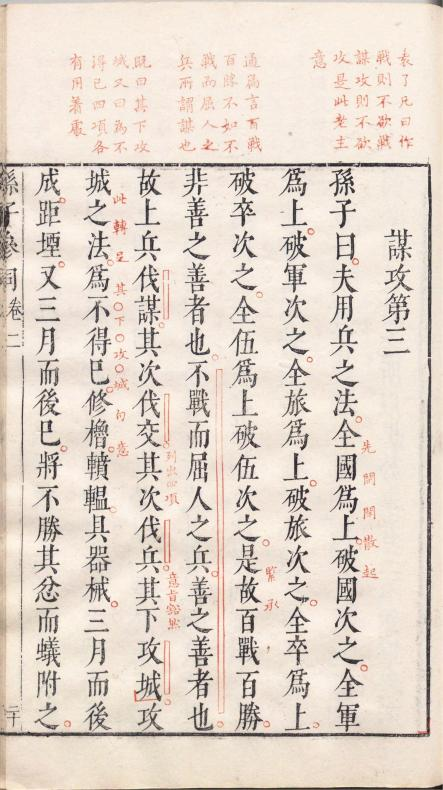 袁了凡曰作
戰則不欲戰
謀攻則不欲
攻是此老主
意
通篇言百戰
百勝不如不
戰而屈人之
兵所謂謀也
既曰其下攻
城又曰為不
得已四項各
有用著處
謀攻第三
孫子曰夫用兵之法全國爲上破國次之全軍
爲上破軍次之全旅爲上破旅次之全卒爲上
破卒次之全伍爲上破伍次之是故百戰百勝
緊承
非善之善者也不戰而屈人之兵善之善者也
故上兵伐謀其次伐交其次伐兵其下攻城攻
列出四項
城之法爲不得已修櫓轒轀具器械三月而後
此轉是其下攻城句意
成距堙又三月而後已將不勝其忿而蟻附之
孫子參同卷二